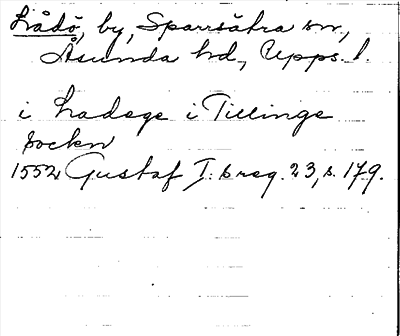 Lådö, by, Sparrsätra sn,
Åsunda hd, Upps. l.
i Ladege i Tillinge
sockn
1552 Gustaf I: breg. 23, s. 179.